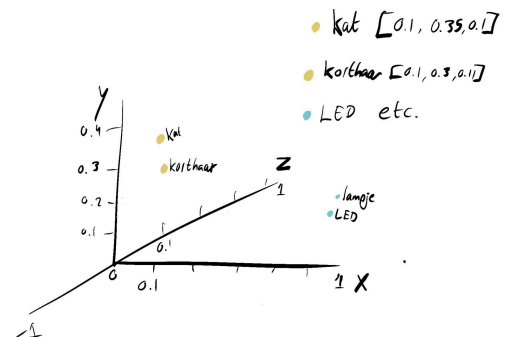 Kat [0.1, 0.35, 0.1]
Korthaar [0.1, 0.3, 0.11]
LED etc.
Y
0.4
Kat
0.3
korthaar
Z
1
0.2
lampje
LED
0.1
0.1
0
0.1
1 X
1